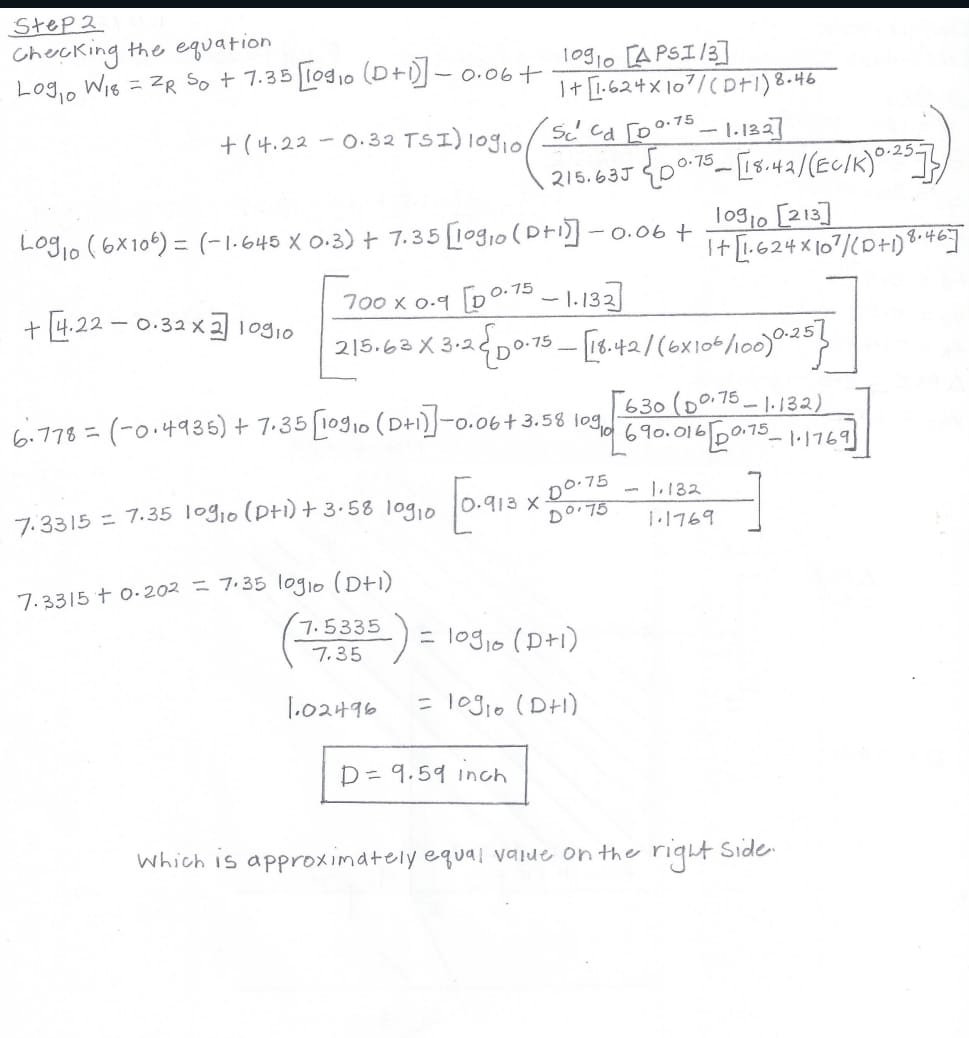 Step 2
Checking the equation
Log₁₀ W₁₈ = Z_R S₀ + 7.35 [log₁₀ (D+1)] − 0.06 + log₁₀ [ΔPSI/3] / 1+[1.624×10⁷/(D+1)^8.46
+ (4.22 − 0.32 TSI) log₁₀ ( Sc' Cd [D^0.75 − 1.132] / 215.63J {D^0.75 − [18.42/(EC/K)^0.25]} )
Log₁₀ (6×10⁶) = (−1.645 × 0.3) + 7.35 [log₁₀ (D+1)] − 0.06 + log₁₀ [213] / 1+[1.624×10⁷/(D+1)^8.46]
+ [4.22 − 0.32 × 2] log₁₀ [ 700 × 0.9 [D^0.75 − 1.132] / 215.63 × 3.2 {D^0.75 − [18.42/(6×10⁶/100)^0.25} ]
6.778 = (−0.4935) + 7.35 [log₁₀ (D+1)] − 0.06 + 3.58 log₁₀ [ 630 (D^0.75 − 1.132) / 690.016 [D^0.75 − 1.1769] ]
7.3315 = 7.35 log₁₀ (D+1) + 3.58 log₁₀ [ 0.913 × D^0.75 − 1.132 / D^0.75 1.1769 ]
7.3315 + 0.202 = 7.35 log₁₀ (D+1)
(7.5335 / 7.35) = log₁₀ (D+1)
1.02496 = log₁₀ (D+1)
D = 9.59 inch
Which is approximately equal value on the right side.